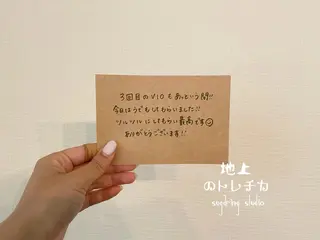 3回目のVIOもあっという間!!
今日はうでもしてもらいました!!
ツルツルにしてもらい最高です
ありがとうございます!!
地上
のトレチカ
sugaring studio